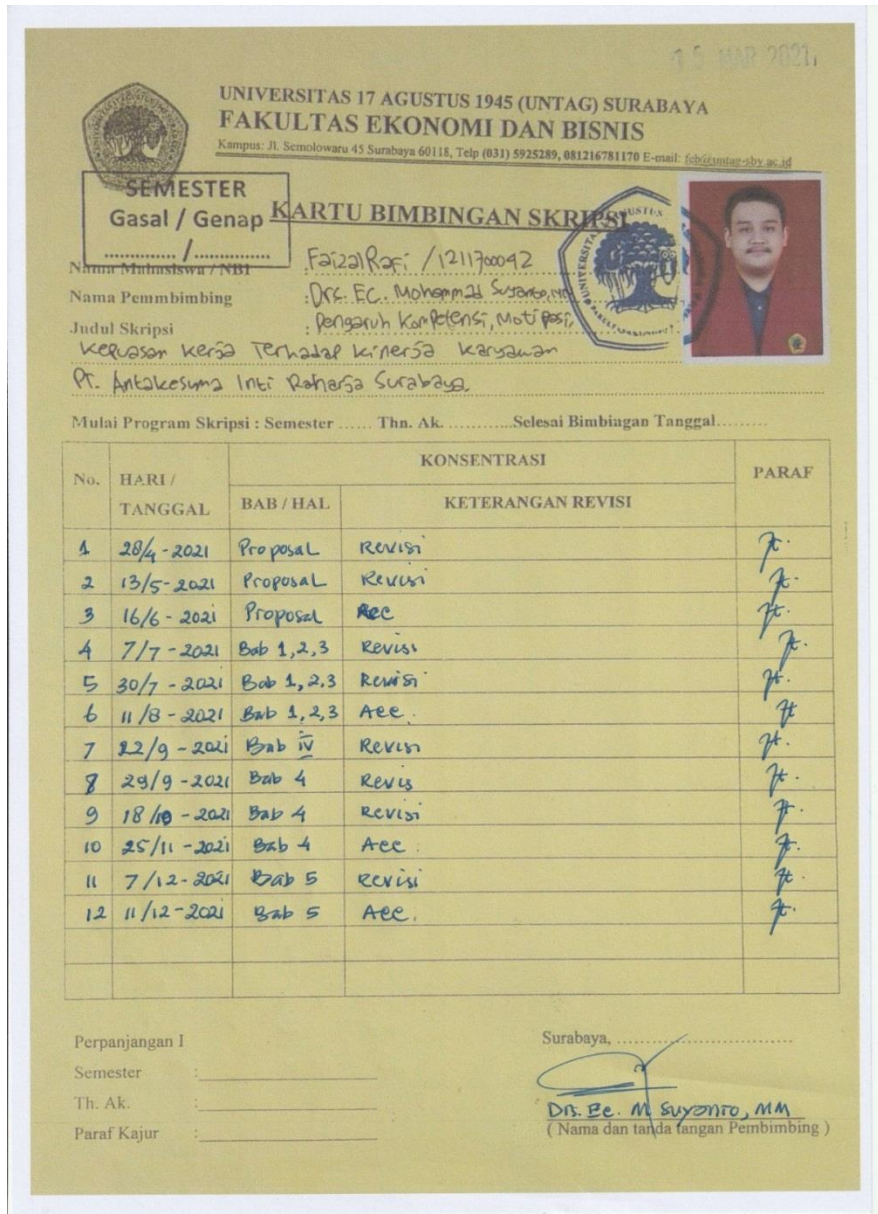 15 MAR 2021
UNIVERSITAS 17 AGUSTUS 1945 (UNTAG) SURABAYA
FAKULTAS EKONOMI DAN BISNIS
Kampus: Jl. Semolowaru 45 Surabaya 60118, Telp (031) 5925289, 081216781170 E-mail: feb@untag-sby.ac.id
SEMESTER
Gasal / Genap
............. /..............
KARTU BIMBINGAN SKRIPSI
Nama Mahasiswa / NBI : Faizal Rafi / 1211700042
Nama Pemmbimbing : Drs. EC. Mohammad Suyanto, MM
Judul Skripsi : Pengaruh Kompetensi, Motipasi,
Kepuasan Kerja Terhadap Kinerja Karyawan
PT. Antakesuma Inti Raharja Surabaya.
Mulai Program Skripsi : Semester ...... Thn. Ak. ............Selesai Bimbiagan Tanggal.........
No. HARI / TANGGAL KONSENTRASI PARAF
BAB / HAL KETERANGAN REVISI
1 28/4 - 2021 Proposal Revisi
2 13/5 - 2021 Proposal Revisi
3 16/6 - 2021 Proposal Acc
4 7/7 - 2021 Bab 1,2,3 Revisi
5 30/7 - 2021 Bab 1,2,3 Revisi
6 11/8 - 2021 Bab 1,2,3 Acc.
7 22/9 - 2021 Bab IV Revisi
8 29/9 - 2021 Bab 4 Revis
9 18/10 - 2021 Bab 4 Revisi
10 25/11 - 2021 Bab 4 Acc.
11 7/12 - 2021 Bab 5 Revisi
12 11/12 - 2021 Bab 5 Acc.
Perpanjangan I
Semester :
Th. Ak. :
Paraf Kajur :
Surabaya, .................................
Drs. Ec. M Suyanto, MM
( Nama dan tanda tangan Pembimbing )